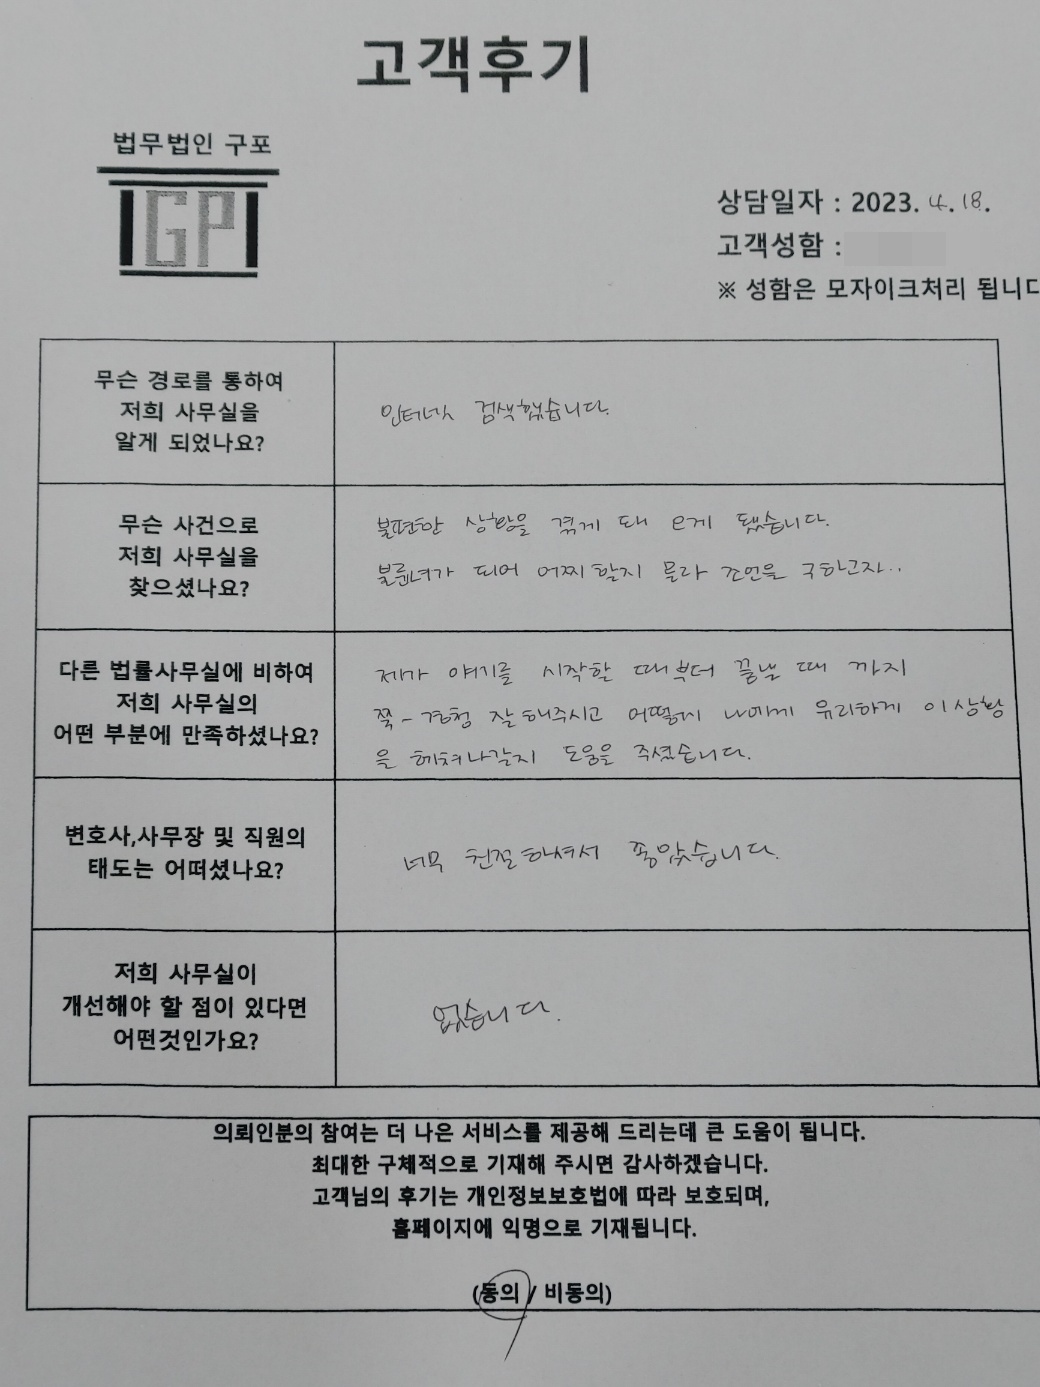 고객후기
법무법인 구포
GP
상담일자 : 2023. 4. 18.
고객성함 :
※ 성함은 모자이크처리 됩니다
무슨 경로를 통하여
저희 사무실을
알게 되었나요?
인터넷 검색했습니다.
무슨 사건으로
저희 사무실을
찾으셨나요?
불편한 상황을 겪게 돼 오게 됐습니다.
불륜녀가 되어 어찌할지 몰라 조언을 구하고자..
다른 법률사무실에 비하여
저희 사무실의
어떤 부분에 만족하셨나요?
제가 얘기를 시작할 때부터 끝낼 때 까지
쭉 - 경청 잘 해주시고 어떻게 나에게 유리하게 이 상황
을 헤쳐나갈지 도움을 주셨습니다.
변호사,사무장 및 직원의
태도는 어떠셨나요?
너무 친절하셔서 좋았습니다.
저희 사무실이
개선해야 할 점이 있다면
어떤것인가요?
없습니다.
의뢰인분의 참여는 더 나은 서비스를 제공해 드리는데 큰 도움이 됩니다.
최대한 구체적으로 기재해 주시면 감사하겠습니다.
고객님의 후기는 개인정보보호법에 따라 보호되며,
홈페이지에 익명으로 기재됩니다.
(동의 / 비동의)